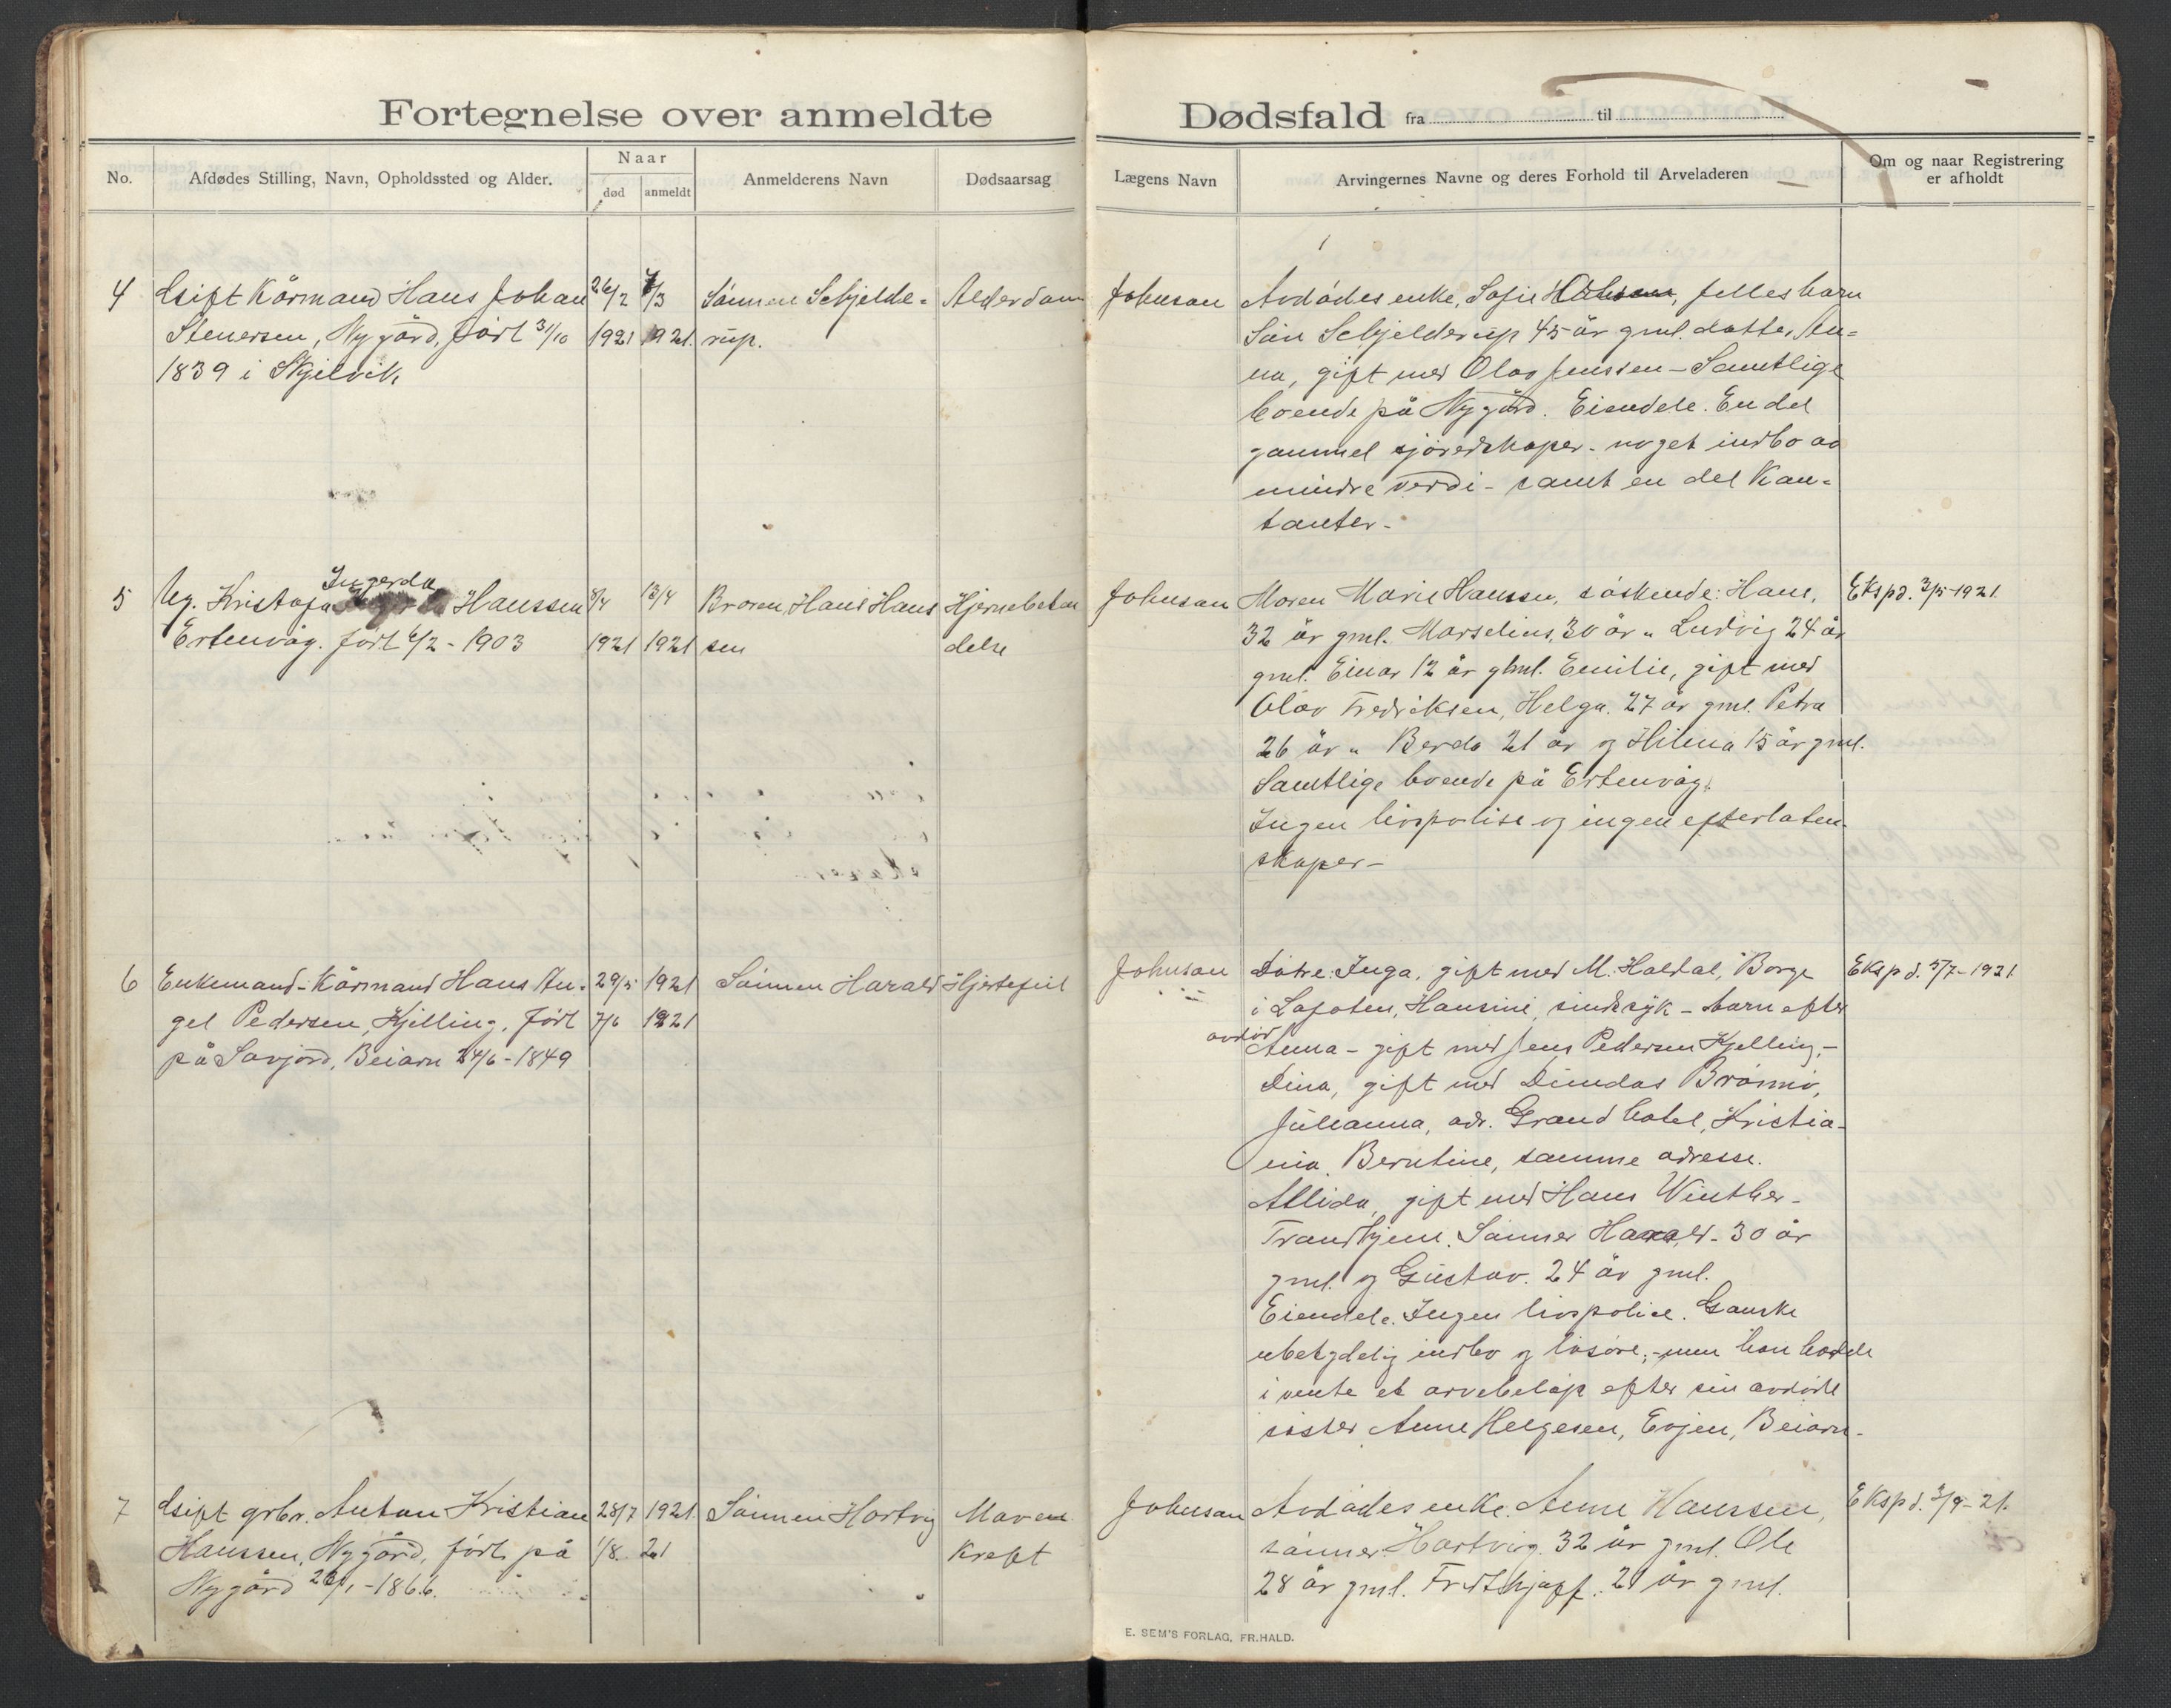 Fortegnelse over anmeldte Dødsfald fra til
No.
Afdødes Stilling, Navn, Opholdssted og Alder.
Naar
død anmeldt
Anmelderens Navn
Dødsaarsag
Lægens Navn
Arvingernes Navne og deres Forhold til Arveladeren
Om og naar Registrering
er afholdt
4
Gift Kårmand Hans Johan
Stenersen, Nygård, født 31/10
1839 i Skjelvik
26/2
1921
7/3
1921.
Sønnen Schjelde-
rup.
Alderdom
Johnson
Avdødes enke, Sofie, felles barn
Søn Schjelderup 45 år gml. datter, An-
na, gift med Olav Jenssen - Samtlige
boende på Nygård. Eiendele. En del
gammel sjøredskaper - noget indbo av
mindre verdi - samt en del Kon-
tanter -
5
Ug. Kristofa Ingerda Hanssen
Ertenvåg. født 6/2 - 1903
8/4
1921
13/4
1921
Broren, Hans Hans
sen
Hjernebeten
delse
Johnson
Moren Marie Hanssen, søskende: Hans,
32 år gml. Marselius, 30 år " Ludvig 24 år
gml. Einar 12 år gml. Emilie, gift med
Olav Fredriksen, Helga. 27 år gml. Petra
26 år " Berda 21 år og Hilma 15 år gml.
Samtlige boende på Ertenvåg.
Ingen livspolise og ingen efterlaten-
skaper -
Ekspd. 3/5-1921.
6
Enkemand - Kårmand Hans An-
gel Pedersen, Kjelling, født
på Savjord, Beiarn 24/6 - 1849
29/5 1921
7/6 1921
Sønnen Harald
Hjertefeil
Johnson
Døtre: Inga, gift med M. Haldal, Borge
i Lofoten, Hansine, sindssyk - barn efter
avdød
Anna - gift med Jens Pedersen Kjelling, -
Dina, gift med Dundas Brønnø,
Julianna, adr. Grand hotel, Kristia-
nia. Berntine, samme adresse.
Allida, gift med Hans Winther -
Trondhjem. Sønner Harald - 30 år
gml. og Gustav. 24 år gml.
Eiendele. Ingen livspolise. Ganske
ubetydelig indbo og løsøre; - men han hadde
i vente et arvebeløp efter sin avdøde
søster Anne Helgesen, Evjen, Beiarn -
Ekspd. 5/7-1921.
7
Gift grbr. Anton Kristian
Hanssen, Nygård, født på
Nygård 26/1 - 1866.
28/7 1921.
1/8. 21
Sønnen Hartvig
Mave
kreft
Johnson
Avdødes enke. Anne Hanssen,
sønner: Hartvig. 32 år gml. Ole
28 år gml. Fridthjoff. 21 år gml.
Ekspd. 2/9 - 21.
E. SEM'S FORLAG, FR.HALD.